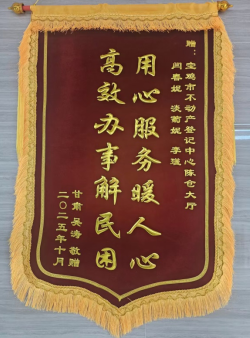 赠：宝鸡市不动产登记中心陈仓大厅
闫春妮 淡菊妮 李瑾
用心服务暖人心
高效办事解民困
甘肃 吴涛 敬赠
二〇二五年十月